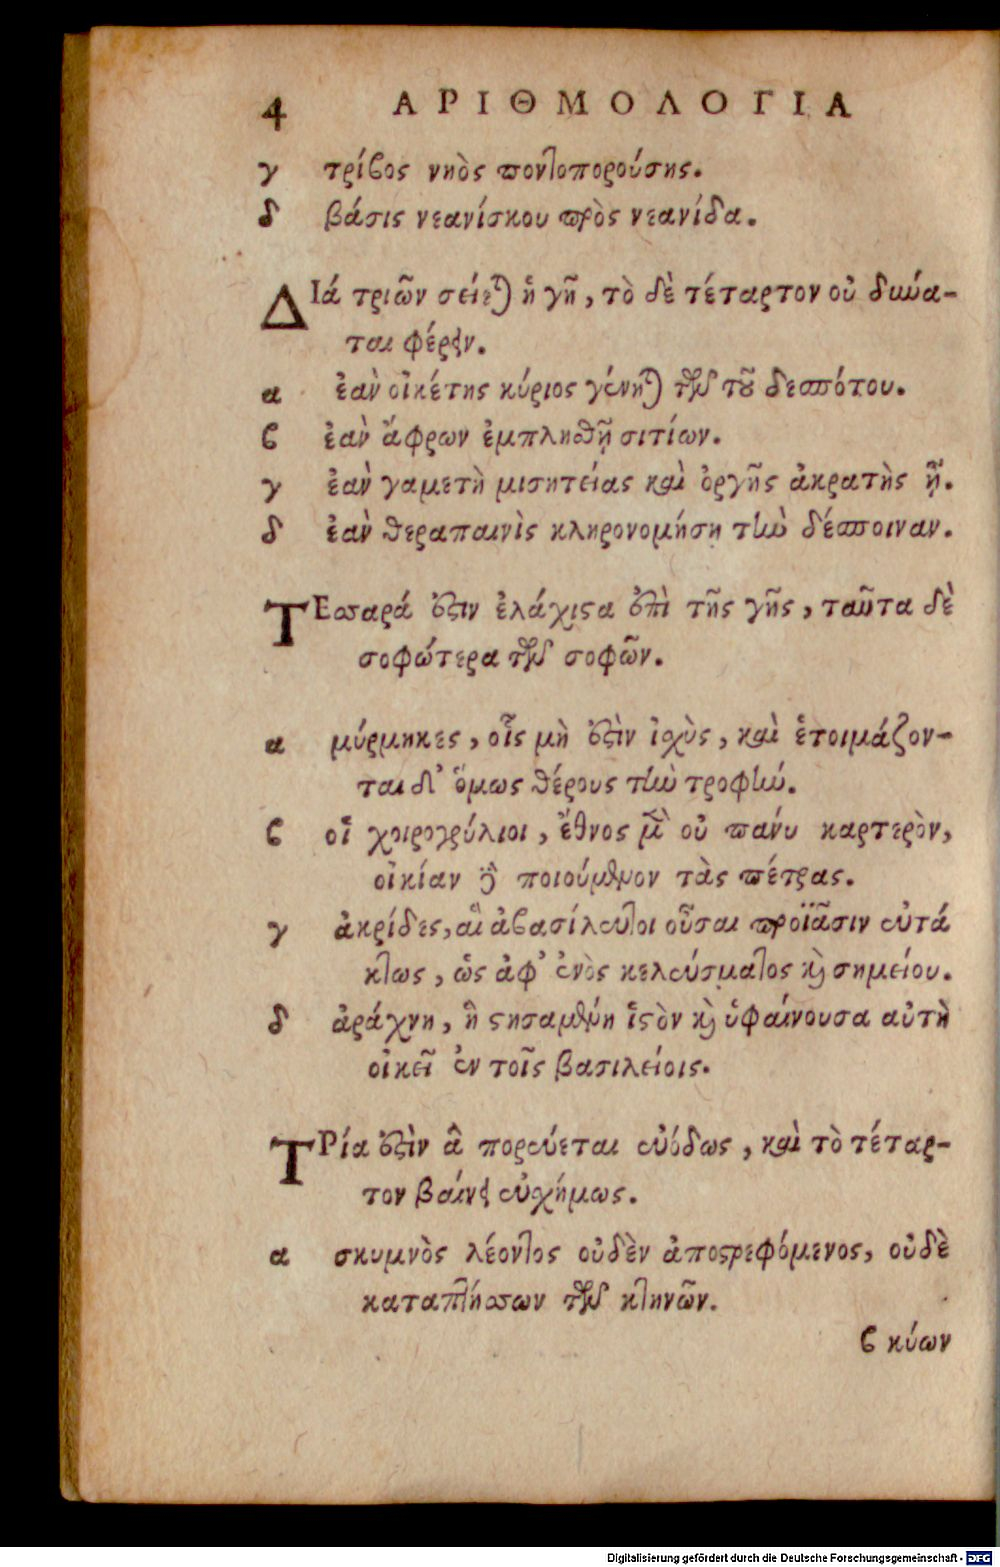 4 ΑΡΙΘΜΟΛΟΓΙΑ
γ τρίβος νηὸς ποντοπορούσης.
δ βάσις νεανίσκου πρὸς νεανίδα.
ΔΙά τριῶν σείεται ἡ γῆ, τὸ δὲ τέταρτον οὐ δύνα-
ται φέρειν.
α ἐὰν οἰκέτης κύριος γένηται τῶν τοῦ δεσπότου.
ϐ ἐὰν ἄφρων ἐμπλησθῇ σιτίων.
γ ἐὰν γαμετὴ μισητείας καὶ ὀργῆς ἀκρατὴς ᾖ.
δ ἐὰν θεραπαινὶς κληρονομήσῃ τὴν δέσποιναν.
ΤΕσσαρά ἐστιν ἐλάχιστα ἐπὶ τῆς γῆς, ταῦτα δὲ
σοφώτερα τῶν σοφῶν.
α μύρμηκες, οἷς μὴ ἐστὶν ἰσχὺς, καὶ ἑτοιμάζον-
ται δι' ὅμως θέρους τὴν τροφὴν.
ϐ οἱ χοιρογρύλιοι, ἔθνος μὲν οὐ πανύ καρτερὸν,
οἰκίαν δὲ ποιούμενον τὰς πέτρας.
γ ἀκρίδες, αἳ ἀβασίλευτοι οὖσαι προϊᾶσιν εὐτά
κτως, ὡς ἀφ' ἑνὸς κελεύσματος καὶ σημείου.
δ ἀράχνη, ἣ στησαμένη ἱστὸν καὶ ὑφαίνουσα αὐτὴ
οἰκεῖ ἐν τοῖς βασιλείοις.
ΤΡία ἐστὶν ἃ πορεύεται εὐόδως, καὶ τὸ τέταρ-
τον βαίνει εὐσχήμως.
α σκυμνὸς λέοντος οὐδὲν ἀποστρεφόμενος, οὐδὲ
καταπλήσσων τῶν κτηνῶν.
ϐ κύων
Digitalisierung gefördert durch die Deutsche Forschungsgemeinschaft - DFG